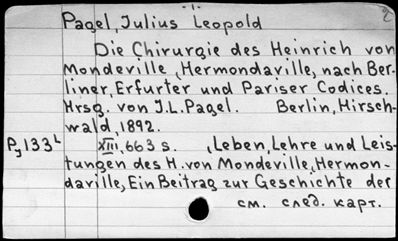 2
Pagel, Julius Leopold
Die Chirurgie des Heinrich von
Mondeville, Hermondaville, nach Ber-
liner, Erfurter und Pariser Codices.
Hrsg. von J.L. Pagel. Berlin, Hirsch-
wald, 1892.
Py133L XIII, 663 s. ,Leben, Lehre und Leis-
tungen des H. von Mondeville, Hermon-
daville, Ein Beitrag zur Geschichte der
см. след. карт.